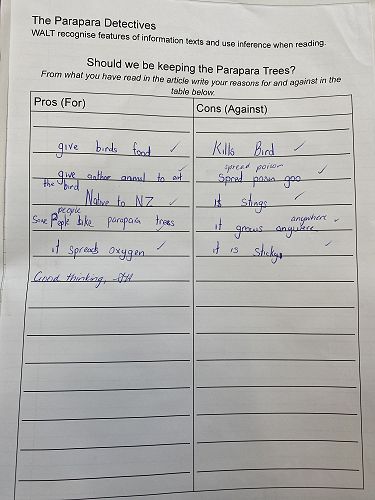 The Parapara Detectives
WALT recognise features of information texts and use inference when reading.
Should we be keeping the Parapara Trees?
From what you have read in the article write your reasons for and against in the
table below.
Pros (For)
Cons (Against)
give birds food
Kills Bird
spread poison
give anther animal to eat
Spred posin goo
the bird
Native to NZ
it stings
people
anywhere
Some Peple like parapara trees
it grows anywere
it spreads oxygen
it is sticky
Good thinking,